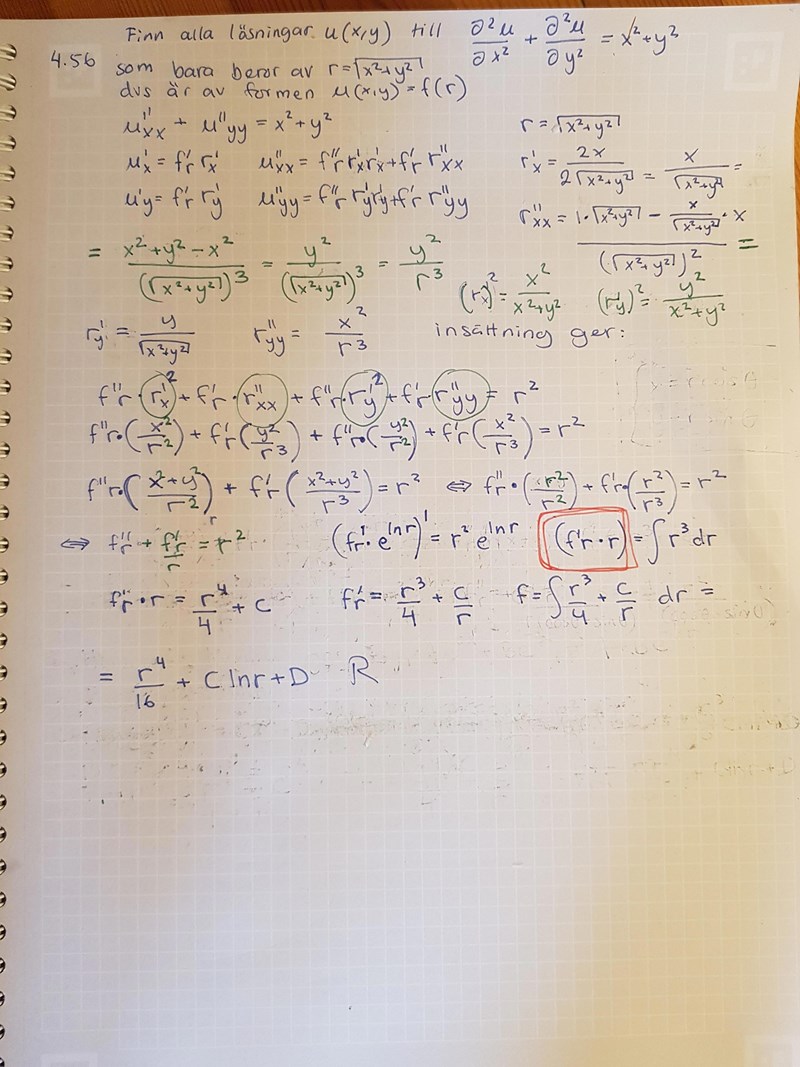 Finn alla lösningar u(x,y) till ∂²u/∂x² + ∂²u/∂y² = x²+y²
4.56 som bara beror av r=√(x²+y²)
dvs är av formen u(x,y)=f(r)
u''xx + u''yy = x²+y² r = √(x²+y²)
u'x = f'r r'x u''xx = f''r r'x r'x + f'r r''xx r'x = 2x/(2√(x²+y²)) = x/√(x²+y²) =
u'y = f'r r'y u''yy = f''r r'y r'y + f'r r''yy r''xx = (1·√(x²+y²) − x/√(x²+y²) · x)/(√(x²+y²))² =
= (x²+y²−x²)/(√(x²+y²))³ = y²/(√(x²+y²))³ = y²/r³ (r'x)² = x²/(x²+y²) (r'y)² = y²/(x²+y²)
r'y = y/√(x²+y²) r''yy = x²/r³ insättning ger:
f''r · r'x² + f'r · r''xx + f''r · r'y² + f'r r''yy = r²
f''r·(x²/r²) + f'r(y²/r³) + f''r·(y²/r²) + f'r(x²/r³) = r²
f''r·((x²+y²)/r²) + f'r((x²+y²)/r³) = r² ⇔ f''r·(r²/r²) + f'r·(r²/r³) = r²
⇔ f''r + f'r/r = r² (f'r · e^(ln r))' = r² e^(ln r) (f'r · r) = ∫r³ dr
f'r · r = r⁴/4 + C f'r = r³/4 + C/r f = ∫ r³/4 + C/r dr =
= r⁴/16 + C ln r + D R